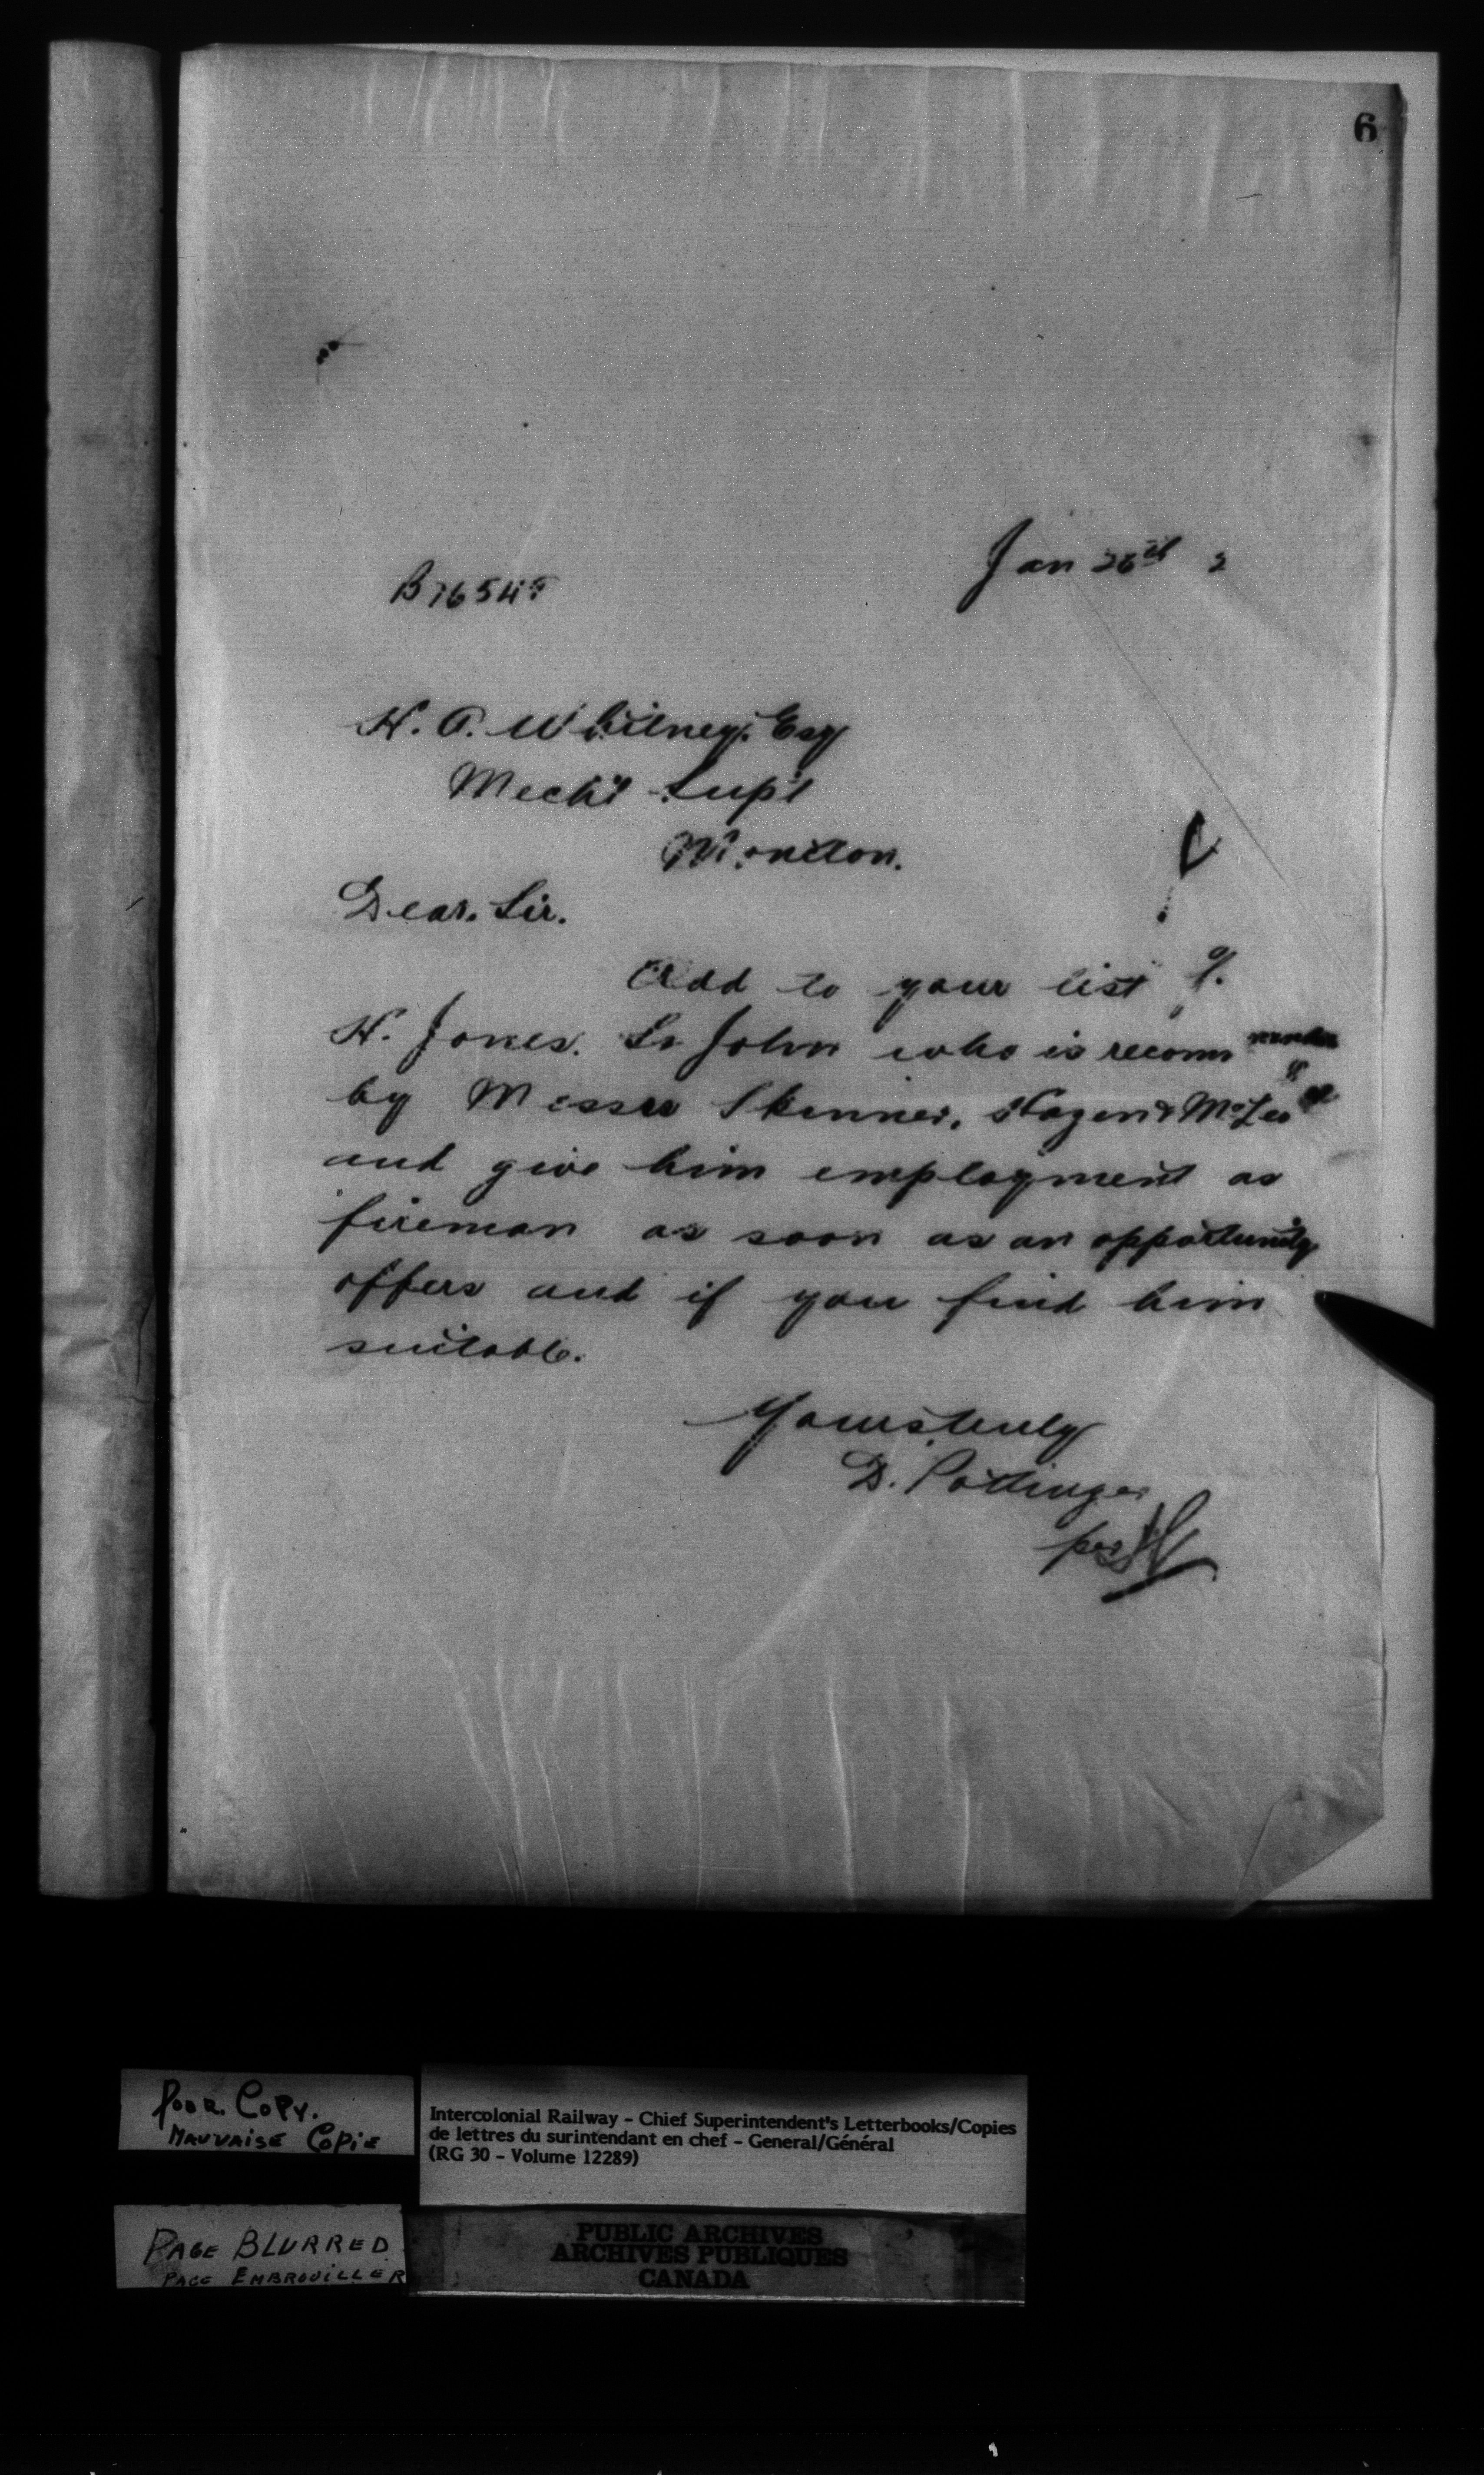 6
Jan 26th 2
B 7654
H. A. Whitney. Esq
Mech'l Sup't
Moncton.
Dear. Sir.
Add to your list
H. Jones. St John who is recom
by Messrs Skinner, Hazen & McLeod
and give him employment as
fireman as soon as an opportunity
offers and if you find him
suitable.
Yours truly
D. Pottinger
per
POOR. COPY.
MAUVAISE COPIE
Intercolonial Railway – Chief Superintendent's Letterbooks/Copies
de lettres du surintendant en chef – General/Général
(RG 30 – Volume 12289)
PAGE BLURRED
PAGE EMBROUILLER
PUBLIC ARCHIVES
ARCHIVES PUBLIQUES
CANADA